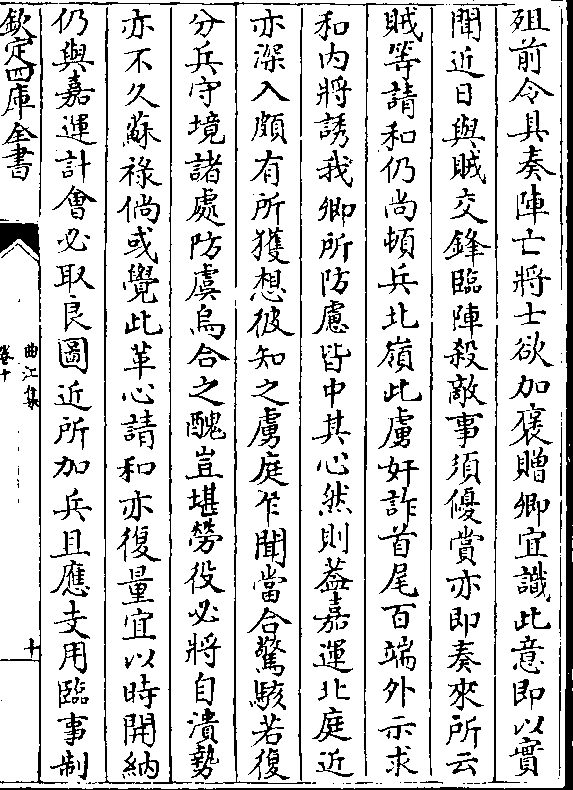 殂前令具奏陣亡將士欲加褒贈卿宜識此意即以實
聞近日與賊交鋒臨陣殺敵事須優賞亦即奏來所云
賊等請和仍尚頓兵北嶺此虜奸詐首尾百端外示求
和内將誘我卿所防慮皆中其心然則蓋嘉運北庭近
亦深入頗有所獲想彼知之虜庭乍聞當合驚駭若復
分兵守境諸處防虞烏合之醜豈堪勞役必將自潰勢
亦不久蘇祿倘或覺此革心請和亦復量宜以時開納
仍與嘉運計會必取良圖近所加兵且應支用臨事制
欽定四庫全書
曲江集
卷十
十